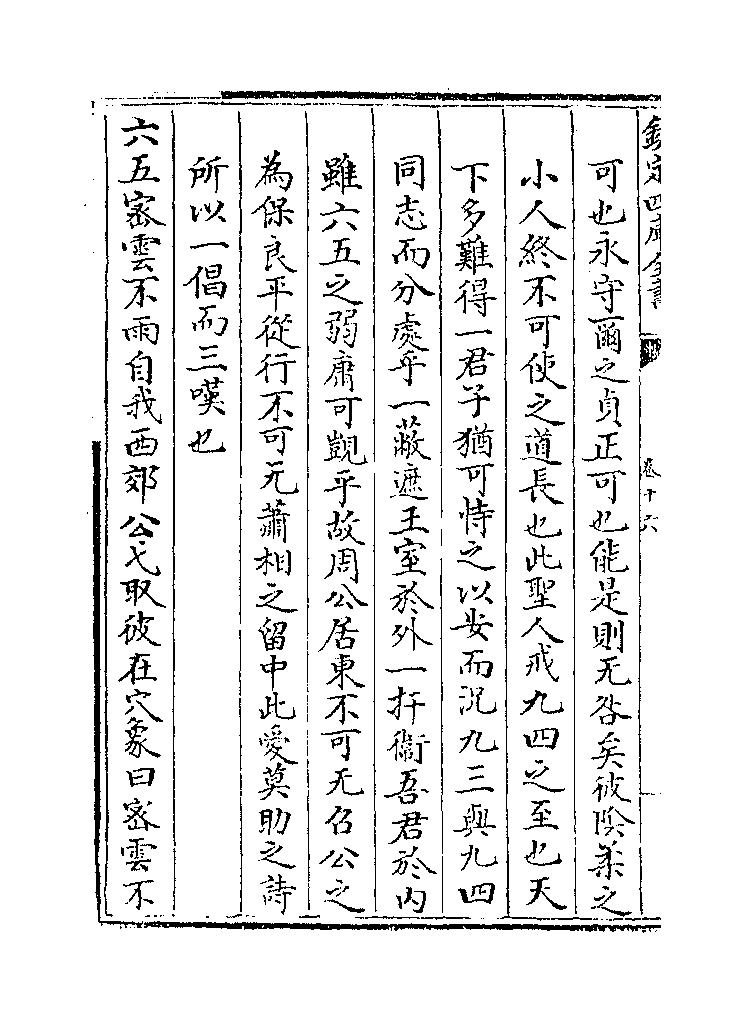 欽定四庫全書
卷十六
可也永守爾之貞正可也能是則无咎矣彼陰柔之
小人終不可使之道長也此聖人戒九四之至也天
下多難得一君子猶可恃之以安而況九三與九四
同志而分處乎一蔽遮王室於外一扞衞吾君於内
雖六五之弱庸可覬乎故周公居東不可无召公之
為保良平從行不可无蕭相之留中此愛莫助之詩
所以一倡而三嘆也
六五密雲不雨自我西郊公弋取彼在穴象曰密雲不